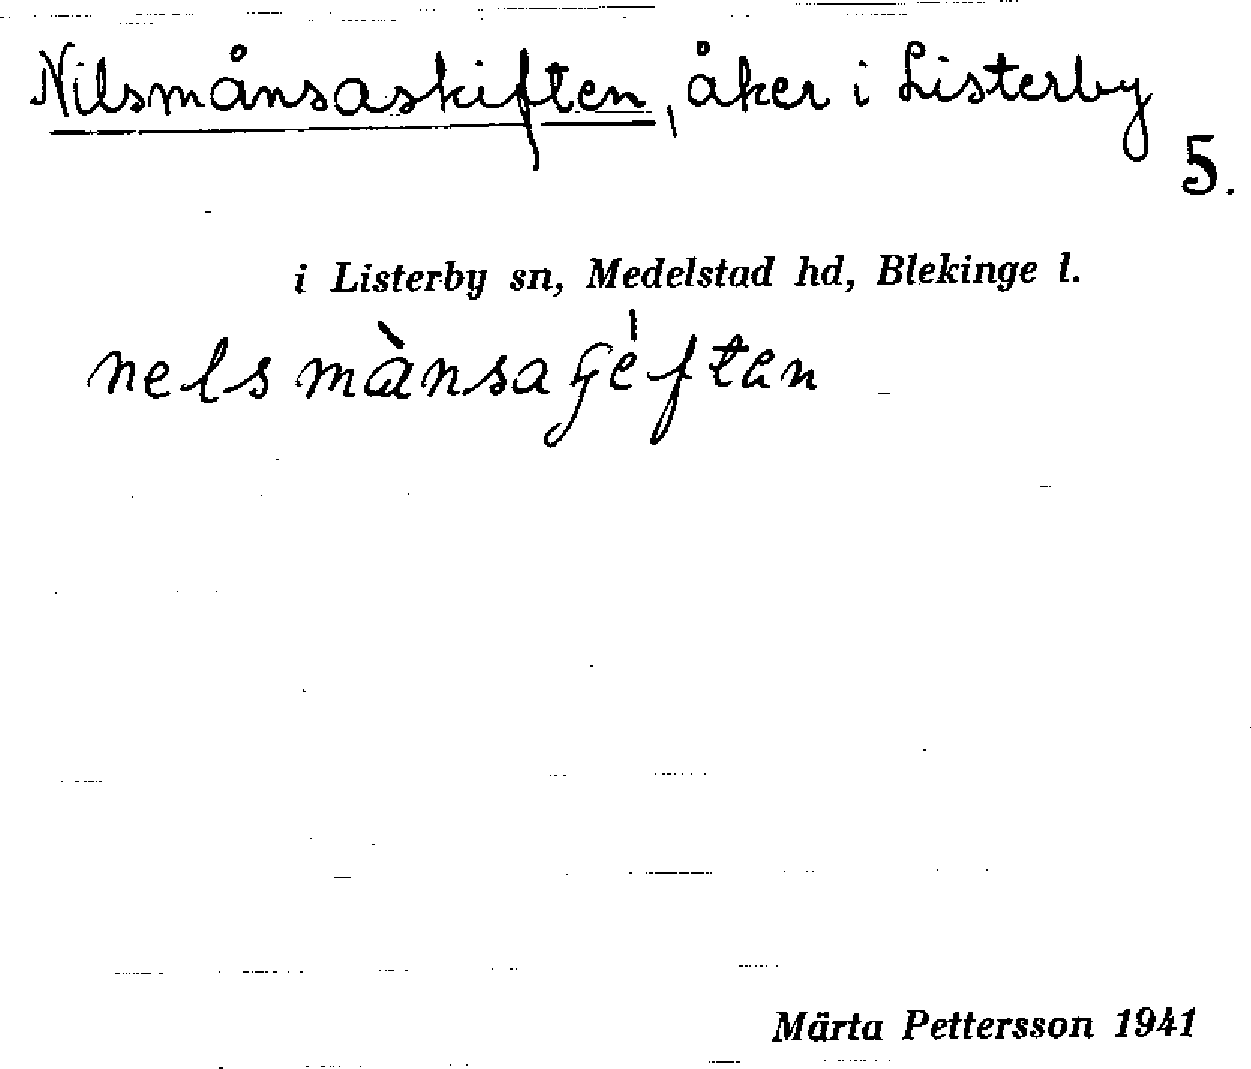 Nilsmånsaskiften, åker i Listerby
5.
i Listerby sn, Medelstad hd, Blekinge l.
nelsmànsaʃéften
Märta Pettersson 1941